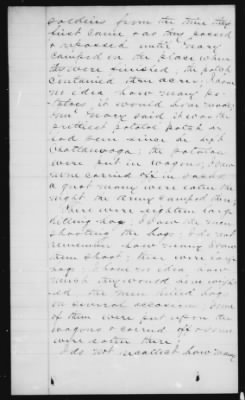 soldiers from the time they
first came & as they passed
& repassed until many
camped on the place where
they were finished the patch
contained three acres; I have
no idea how many po-
tatoes, it would have made,
Mary said it was the
prettiest potato patch he
had seen since he left
Chattanooga; the potatoes
were put in wagons, & some
were carried off in sacks
a great many were eaten the
night the army camped there;
There were eighteen large
killing hogs. I saw the men
shooting the hogs. I do not
remember how many I saw
them shoot; they were large
hogs. I have no idea how
much they would have weigh-
ed. the men killed hogs
on several occasions. Some
of them were put upon the
wagons & carried off & some
were eaten there.
I do not recollect how many